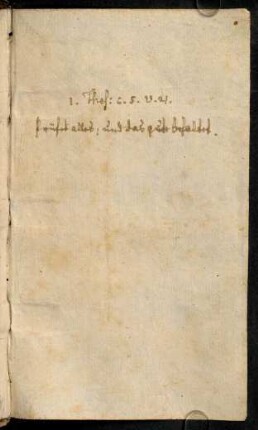 1. Theß: c. 5. v. 21.
prüfet alles, und das gute behaltet.